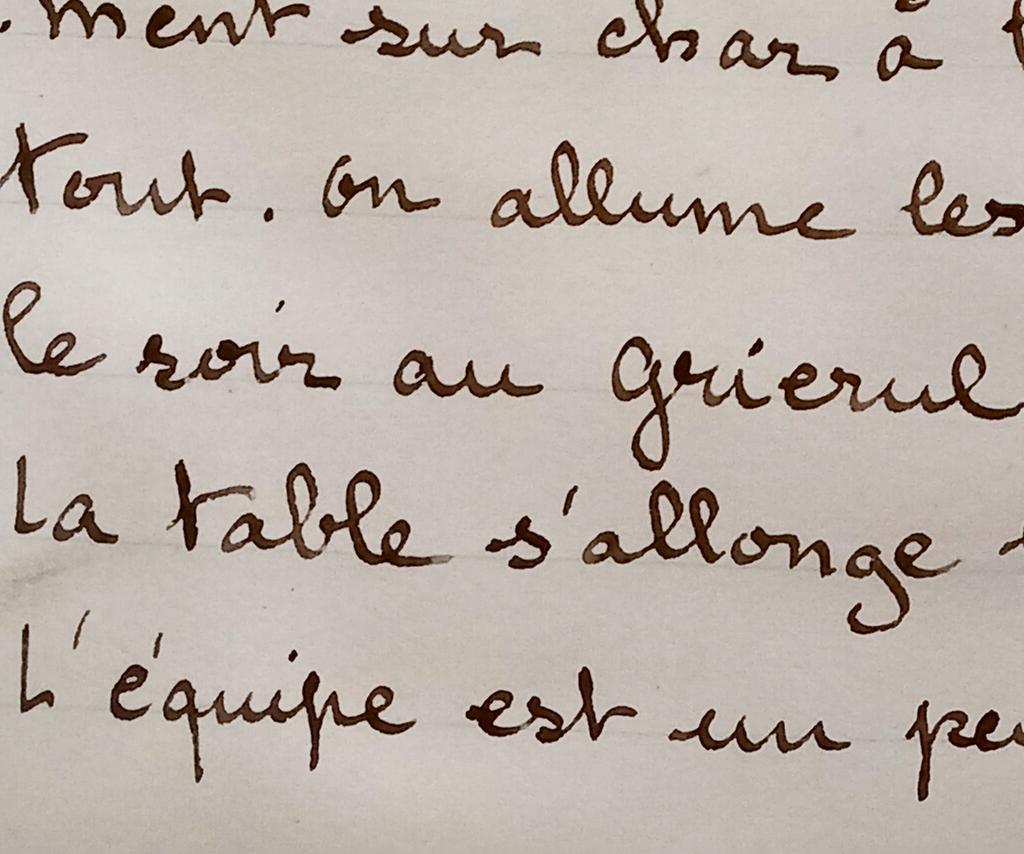 ment sur char à
tout. on allume les
le soir au Grierul
La table s'allonge
L'équipe est un peu